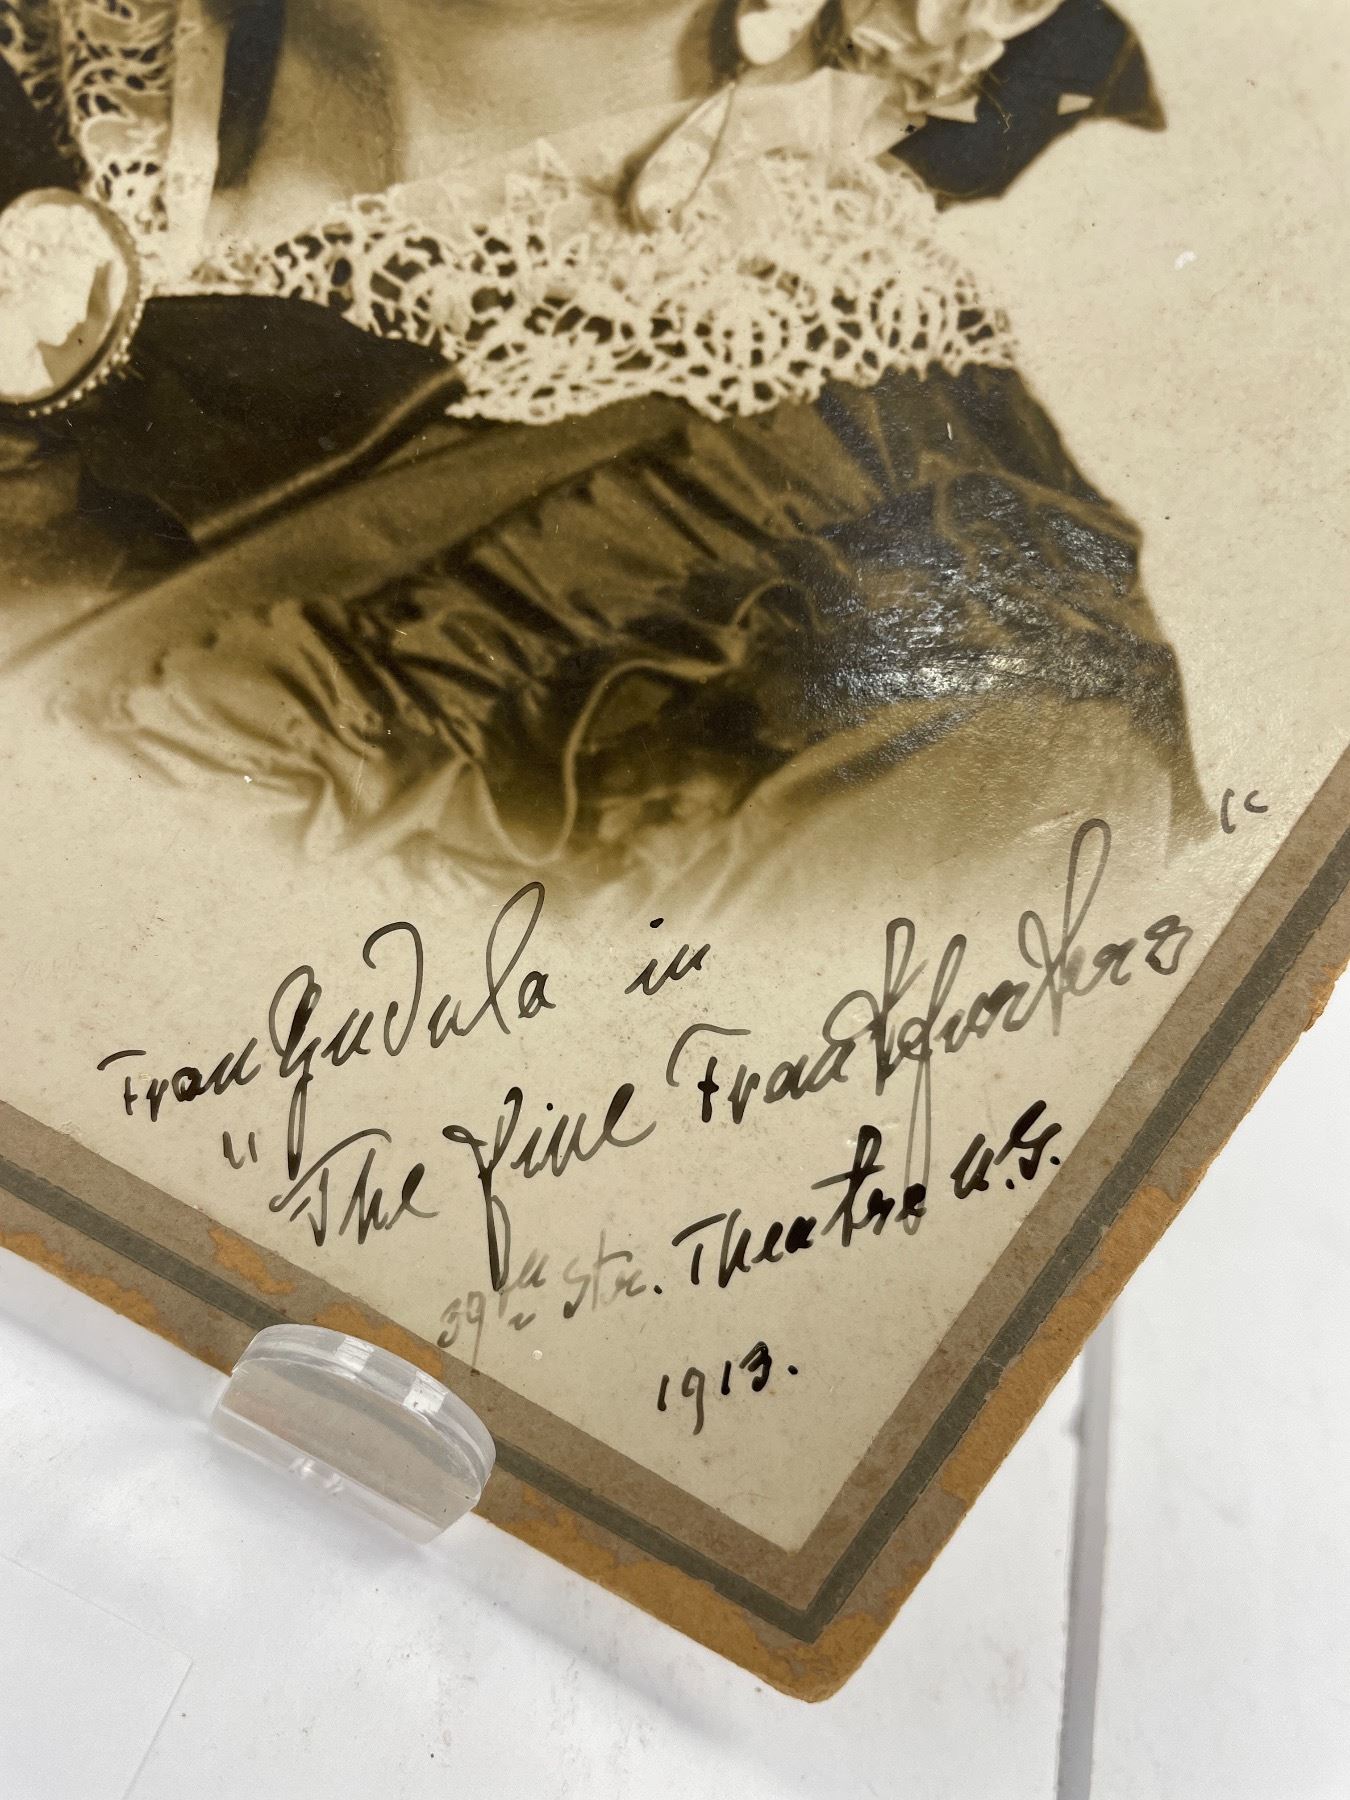 Frau Gudula in
"The five Frankforters"
39th Str. Theatre N.Y.
1913.